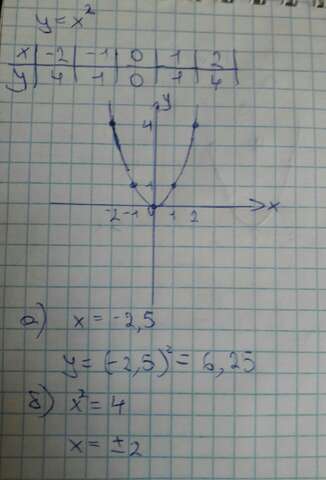 y = x²
x | -2 | -1 | 0 | 1 | 2
y | 4 | 1 | 0 | 1 | 4
y
4
1
-2 -1 0 1 2 x
а) x = -2,5
y = (-2,5)² = 6,25
б) x² = 4
x = ±2